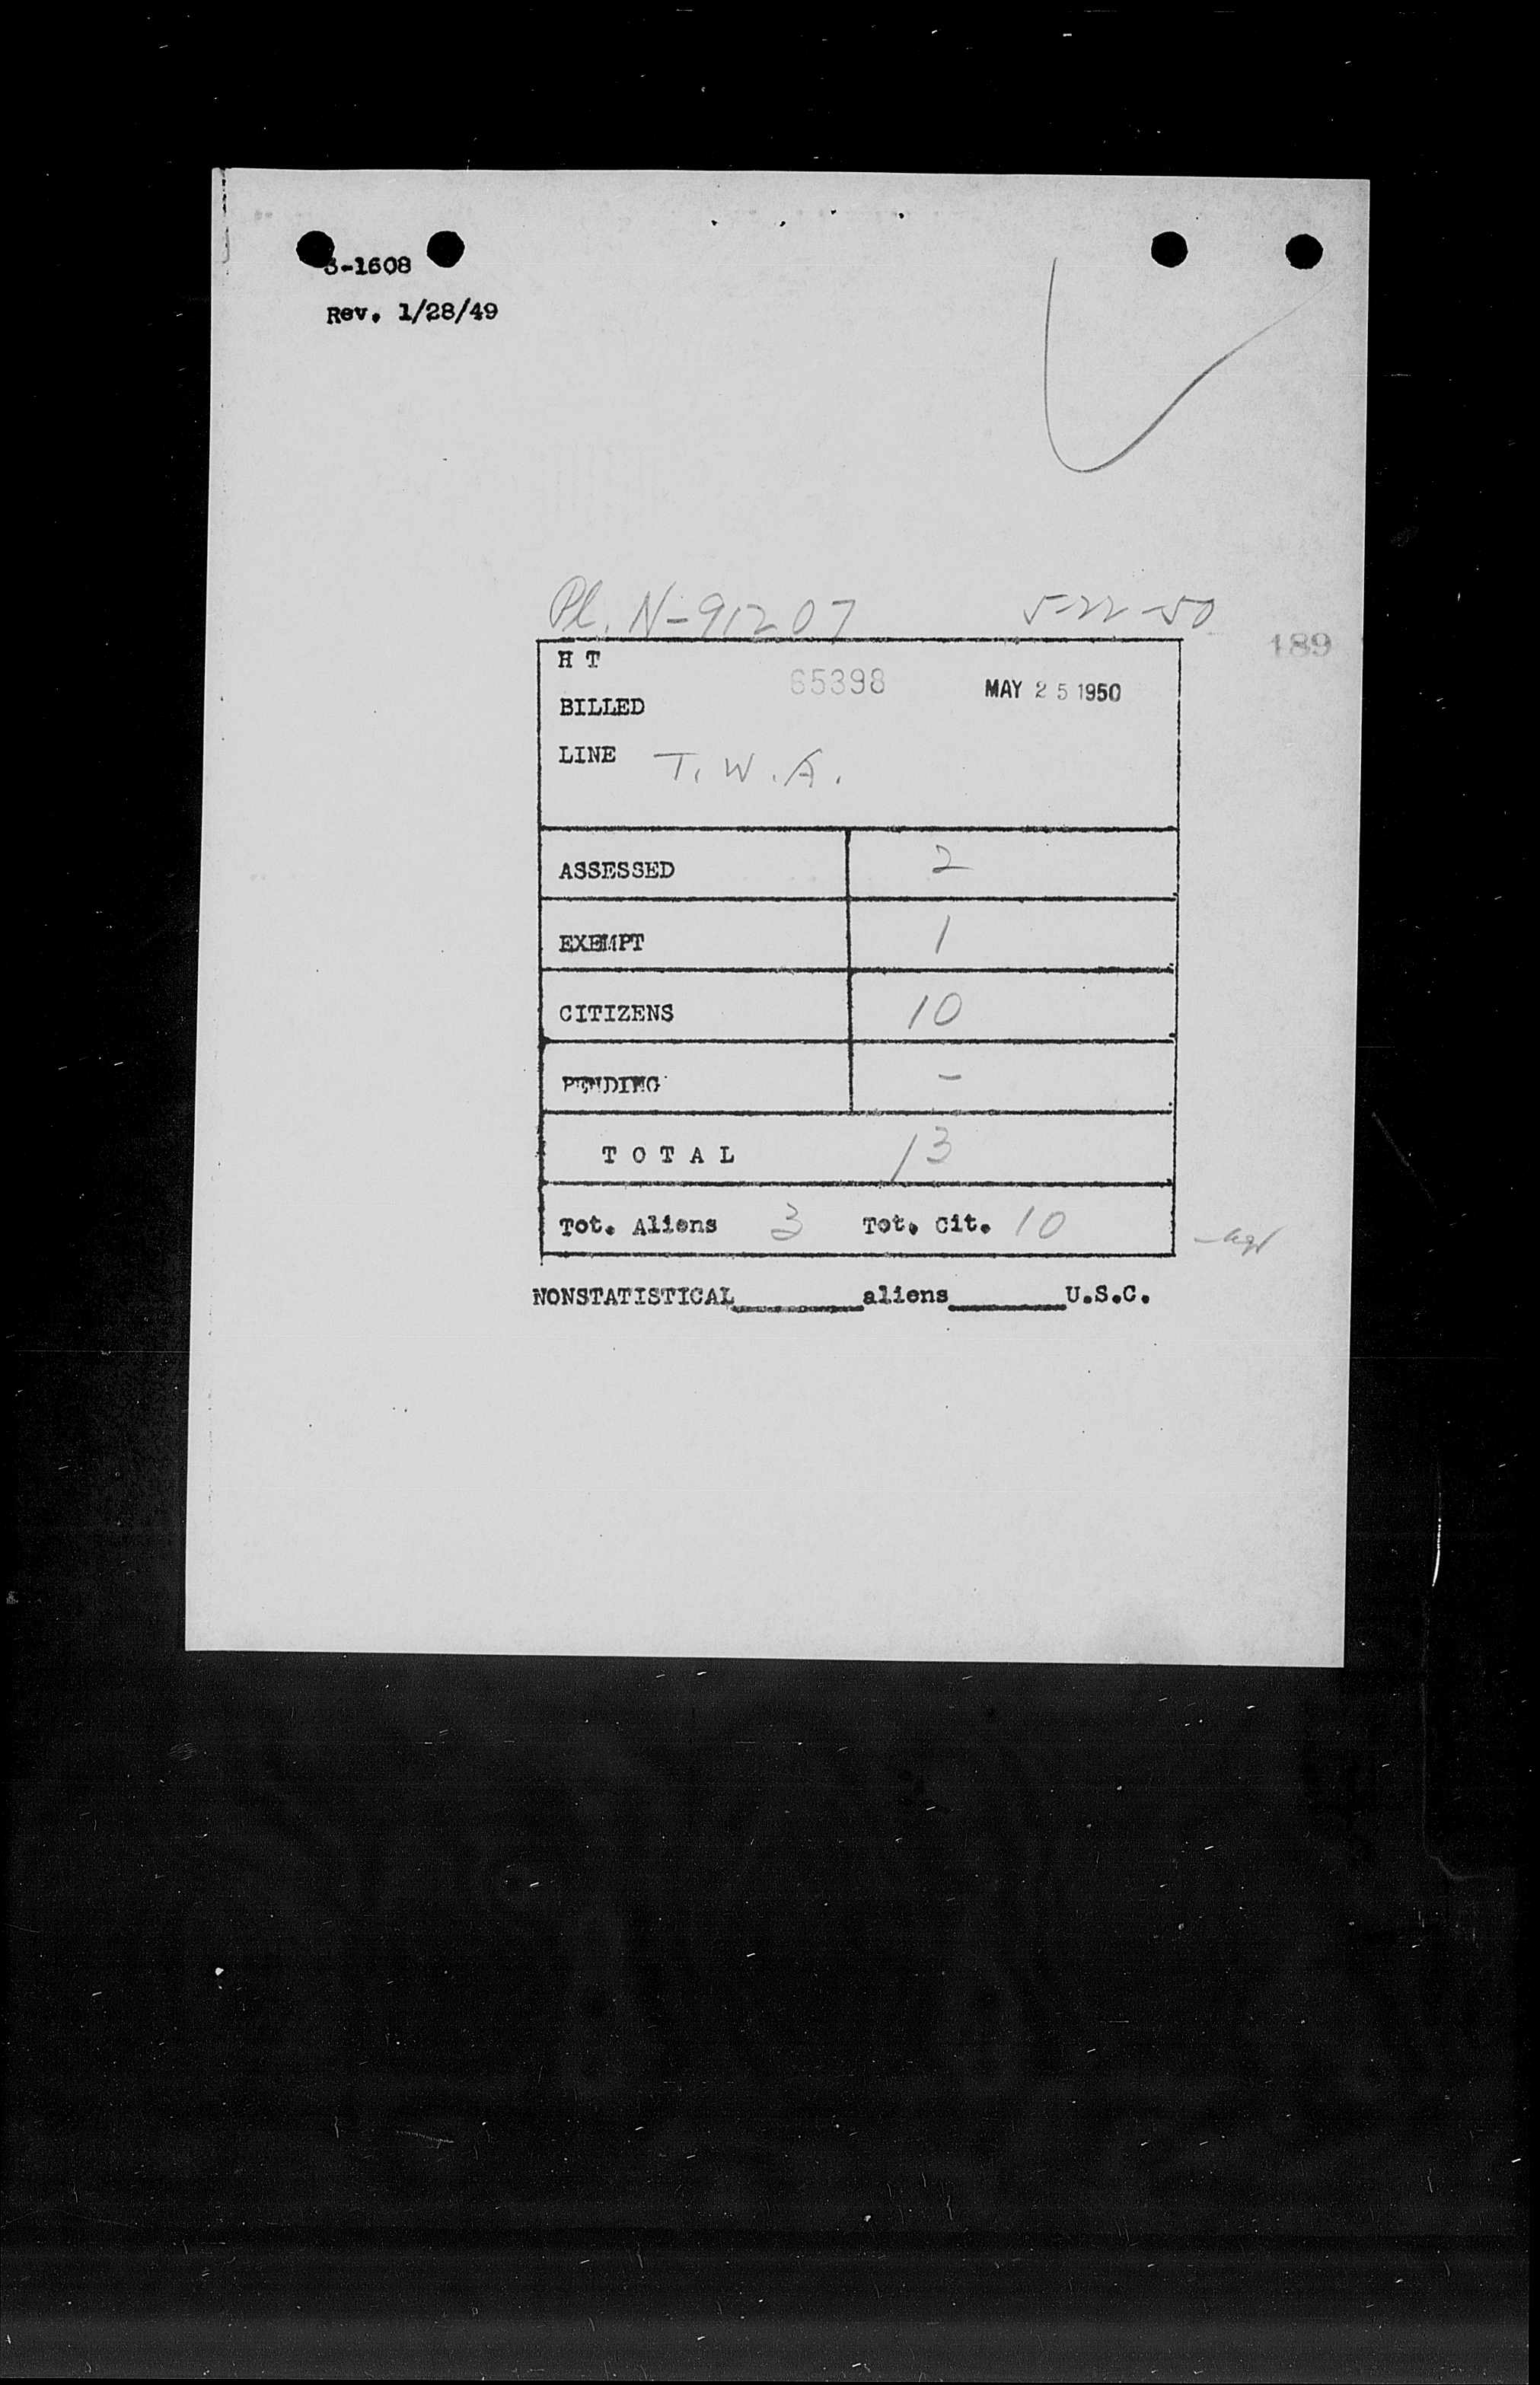 3-1608
Rev. 1/28/49
Pl. N-91207 5-22-50
189
H T
65398 MAY 25 1950
BILLED
LINE T.W.A.
ASSESSED 2
EXEMPT 1
CITIZENS 10
PENDING -
TOTAL 13
Tot. Aliens 3 Tot. Cit. 10
NONSTATISTICAL________aliens________U.S.C.